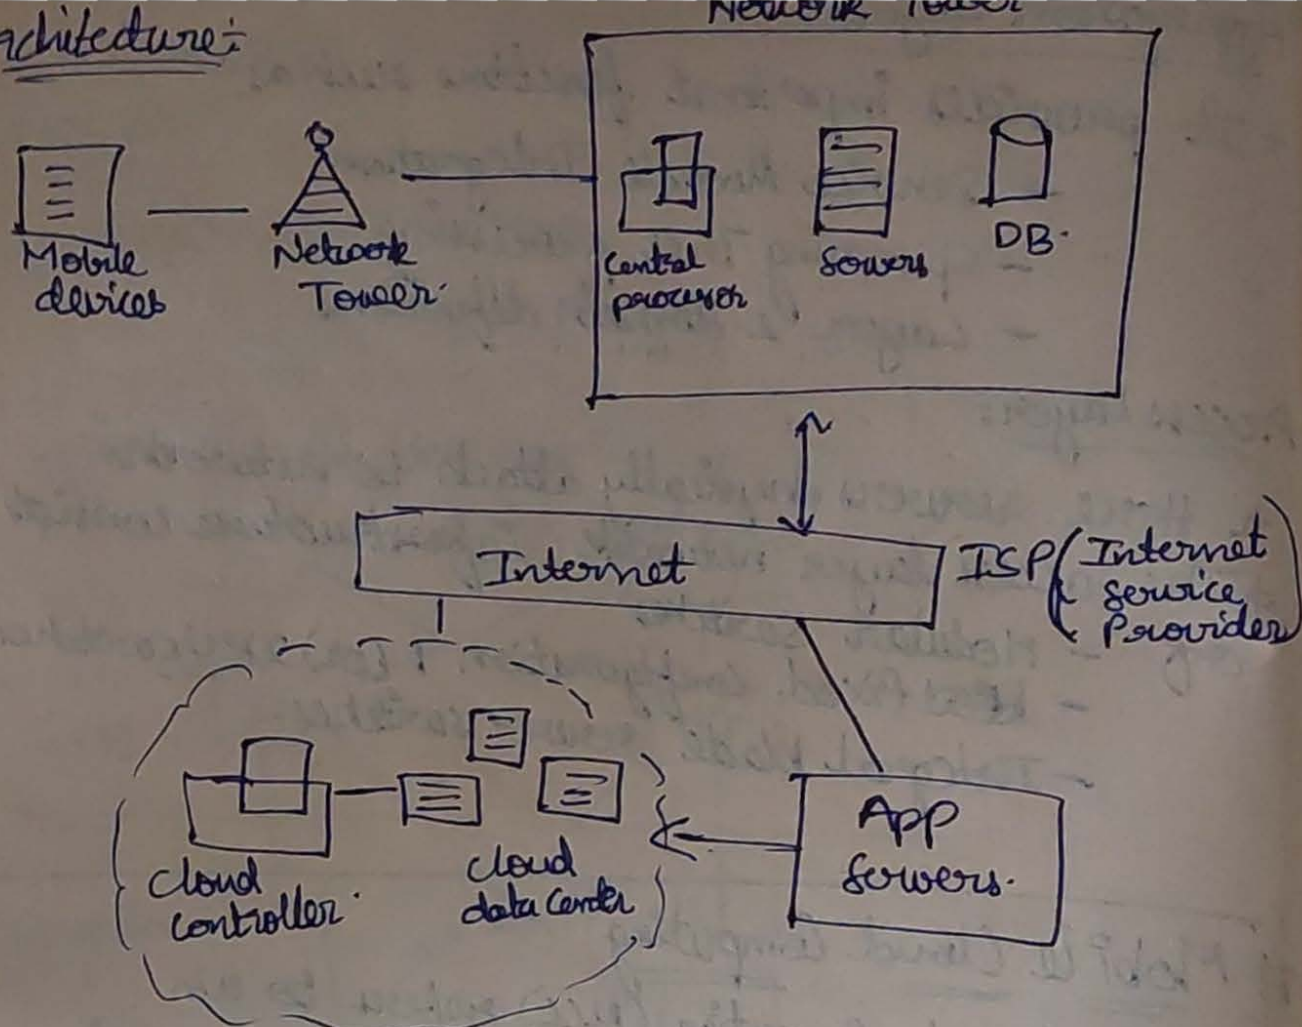 Architecture:-
Network Tower
Mobile
devices
Network
Tower.
Central
processor
Servers
DB.
Internet
ISP (Internet
Service
Provider)
Cloud
Controller.
Cloud
data Center
App
Servers.